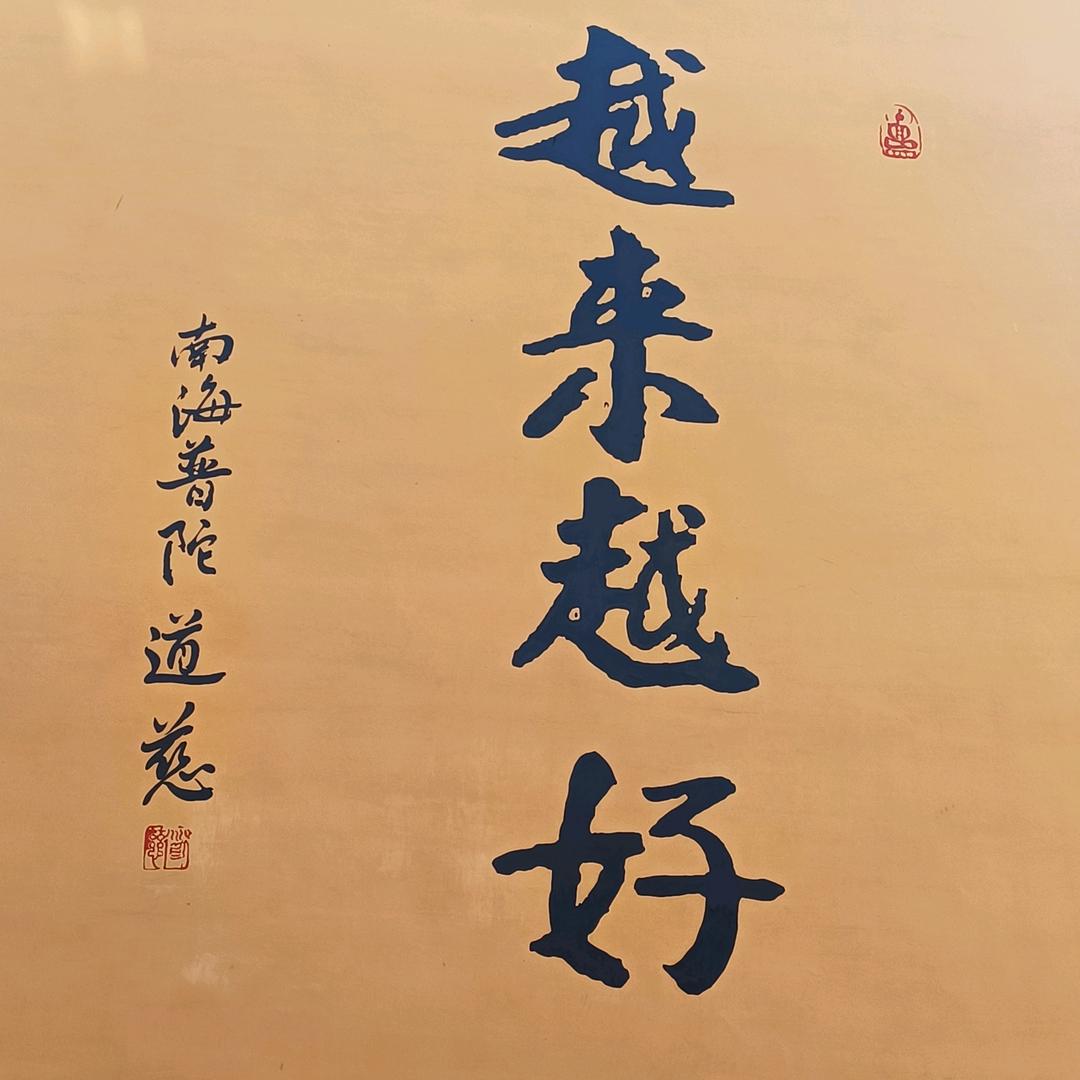 越来越好
南海普陀道慈